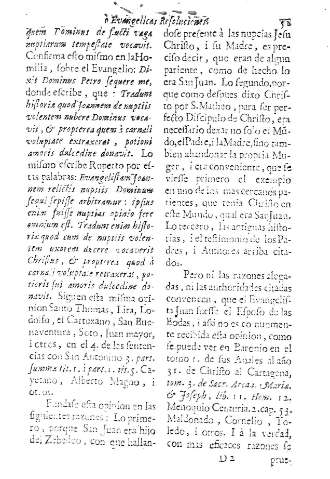 ò Evangelicas Resoluciones
quem Dominus de fæcti vaga
nuptiarum tempestate vocavit.
Confirma esto mismo en la Ho-
milia, sobre el Evangelio: Di-
xit Dominus Petro sequere me,
donde escribe, que : Tradunt
historiæ quod Joannem de nuptiis
volentem nubere Dominus voca-
vit, & propterea quem à carnali
voluptate extraxerat, potiori
amoris dulcedine donavit. Lo
mismo escribe Ruperto por es-
tas palabras: Evangelistam Joan-
nem relictis nuptiis Dominum
sequi sepisse arbitramur: ipsius
enim fuisse nuptias opinio fere
omnium est. Tradunt enim histo-
riæ quod cum de nuptiis volen-
tem uxorem ducere vocaverit
Christus, & propterea quod à
carnali voluptate retraxerat, po-
tioris sui amoris dulcedine do-
navit. Siguen esta misma opi-
nion Santo Thomas, Lira, Lan-
dolfo, el Cartuxano, San Bue-
naventura, Soto, Juan mayor,
i otros, en el 4. de las senten-
cias con San Antonino 3. part.
summa tit. 1. i part. 1. tit. 5. Ca-
yetano, Alberto Magno, i
otros.
Fundase esta opinion en las
siguientes razones: Lo prime-
ro, porque San Juan era hijo
del Zebedeo, con que hallan-
dose presente à las nupcias Jesu
Christo, i su Madre, es pre-
ciso decir, que eran de algun
pariente, como de hecho lo
era San Juan. Lo segundo, por-
que como despues dixo Chris-
to por S. Matheo, para ser per-
fecto Discipulo de Christo, era
necessario dexar no solo el Mu-
do, el Padre, i la Madre, sino tam-
bien abandonar la propria Mu-
ger, i era conveniente, que se
viesse primero el exemplo
en uno de los mas cercanos pa-
rientes, que tenia Christo en
este Mundo, qual era San Juan.
Lo tercero, las antiguas histo-
rias, i el testimonio de los Pa-
dres, i Autores arriba cita-
dos.
Pero ni las razones alega-
das, ni las authoridades citadas
convencen, que el Evangelis-
ta Juan fuesse el Esposo de las
Bodas, i assi no es comunmen-
te recibida esta opinion, como
se puede ver en Baronio en el
tomo 1. de sus Anales al año
31. de Christo al Cartagena,
tom. 3. de Sacr. Arcan. Maria,
& Joseph, lib. 11. Hom. 12.
Menoquio Centuria. 2. cap. 53.
Maldonado, Cornelio, To-
ledo, i otros. I à la verdad,
con mas eficaces razones se
D 2 prue-